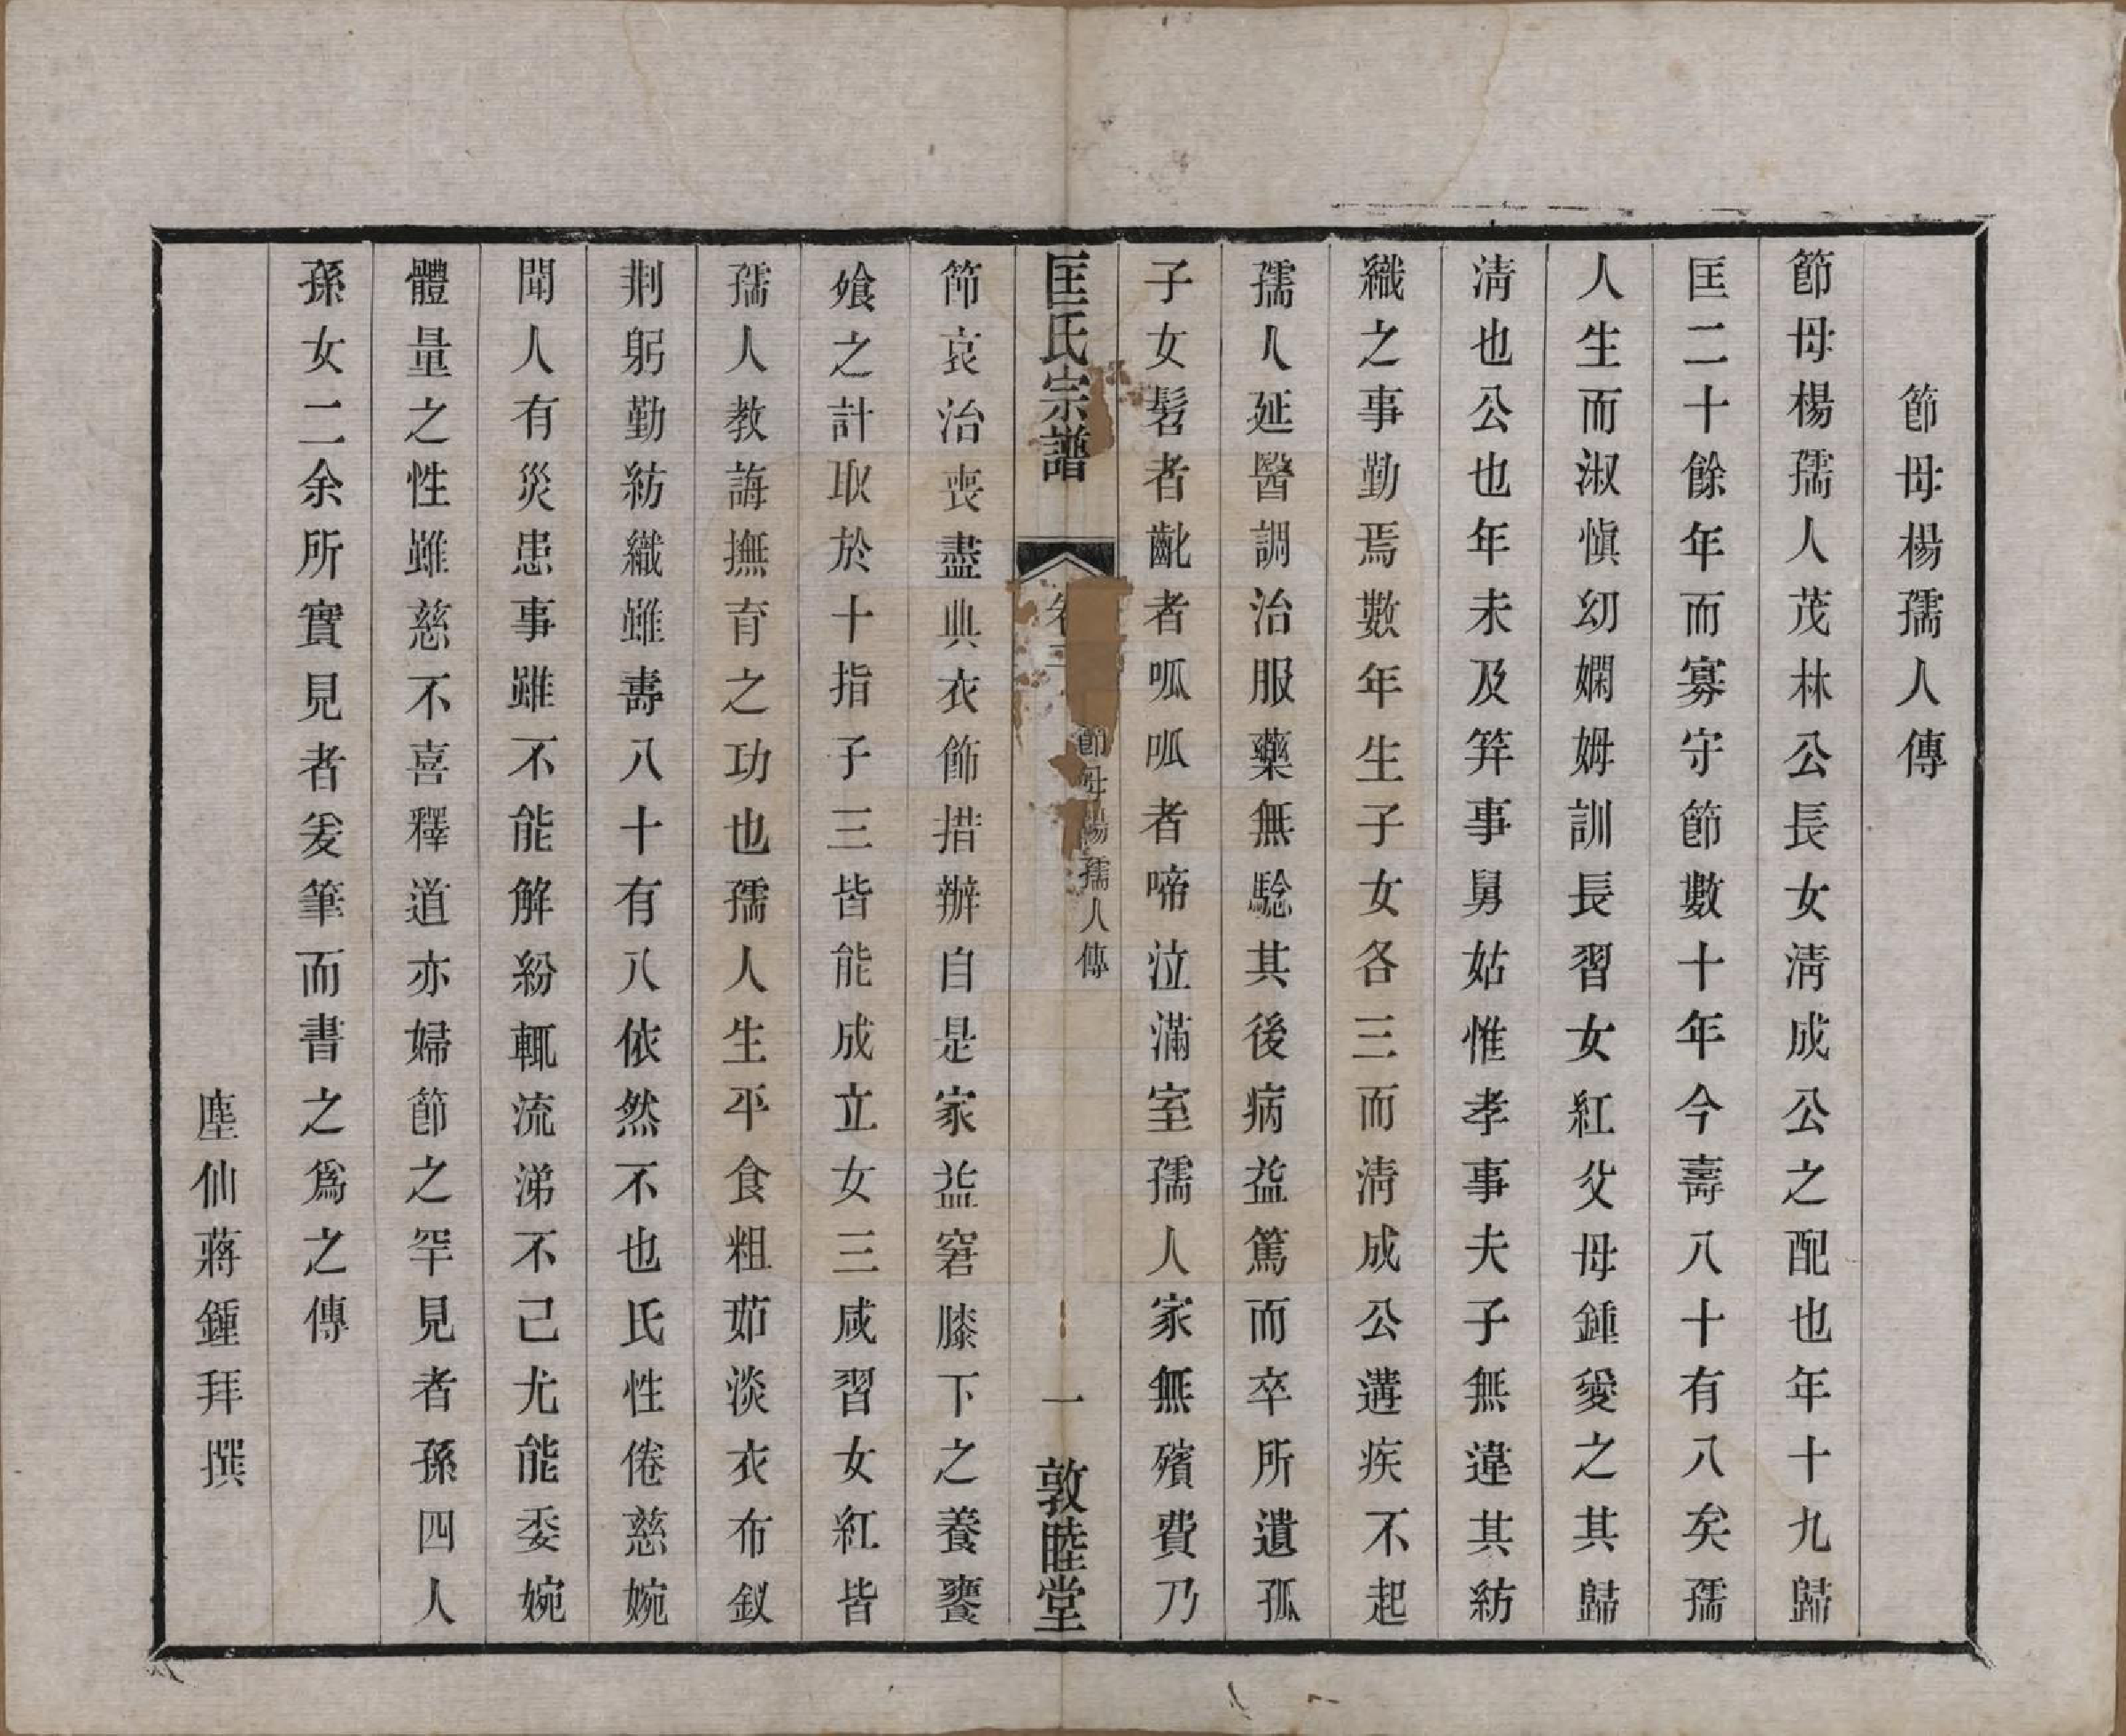 節母楊孺人傳
節母楊孺人茂林公長女淸成公之配也年十九歸
匡二十餘年而寡守節數十年今壽八十有八矣孺
人生而淑愼幼嫻姆訓長習女紅父母鍾愛之其歸
淸也公也年未及笄事舅姑惟孝事夫子無違其紡
織之事勤焉數年生子女各三而淸成公遘疾不起
孺人延醫調治服藥無騐其後病益篤而卒所遺孤
子女髫者齔者呱呱者啼泣滿室孺人家無殯費乃
匡氏宗譜
卷
節母楊孺人傳
一
敦睦堂
節哀治喪盡典衣飾措辦自是家益窘膝下之養饔
飧之計取於十指子三皆能成立女三咸習女紅皆
孺人教誨撫育之功也孺人生平食粗茹淡衣布釵
荆躬勤紡織雖壽八十有八依然不也氏性倦慈婉
聞人有災患事雖不能解紛輒流涕不己尤能委婉
體量之性雖慈不喜釋道亦婦節之罕見者孫四人
孫女二余所實見者爰筆而書之爲之傳
塵仙蔣鍾拜撰